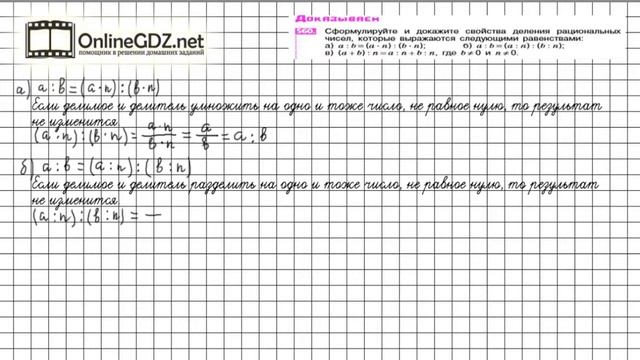 OnlineGDZ.net
помощники в решении домашних заданий
Доказываем
560. Сформулируйте и докажите свойства деления рациональных
чисел, которые выражаются следующими равенствами:
а) a : b = (a · n) : (b · n); б) a : b = (a : n) : (b : n);
в) (a + b) : n = a : n + b : n, где b ≠ 0 и n ≠ 0.
а) a : b = (a · n) : (b · n)
Если делимое и делитель умножить на одно и тоже число, не равное нулю, то результат
не изменится.
(a · n) : (b · n) = a · n / b · n = a / b = a : b
б) a : b = (a : n) : (b : n)
Если делимое и делитель разделить на одно и тоже число, не равное нулю, то результат
не изменится
(a : n) : (b : n) = —